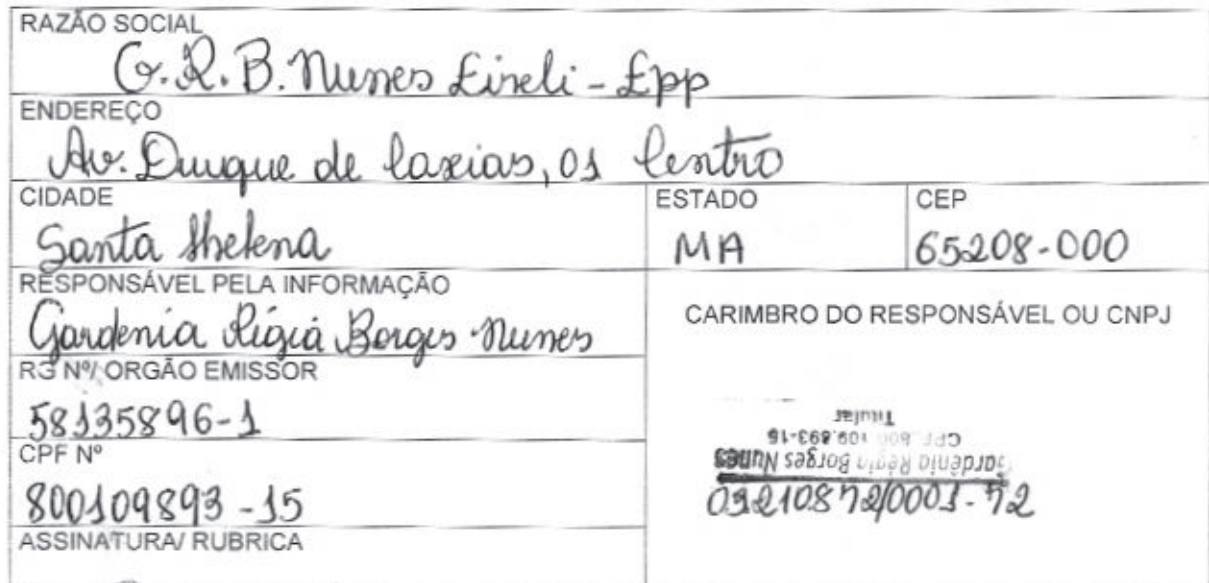 RAZÃO SOCIAL
G.R.B. Nunes Eireli - Epp
ENDEREÇO
Av. Duque de Caxias, 01 Centro
CIDADE
Santa Helena
ESTADO
MA
CEP
65208-000
RESPONSÁVEL PELA INFORMAÇÃO
Gardenia Régia Borges Nunes
RG Nº/ ORGÃO EMISSOR
58135896-1
CPF Nº
800109893-15
ASSINATURA/ RUBRICA
CARIMBRO DO RESPONSÁVEL OU CNPJ
Gardênia Régia Borges Nunes
CPF. 800.109.893-15
Titular
/0001-72